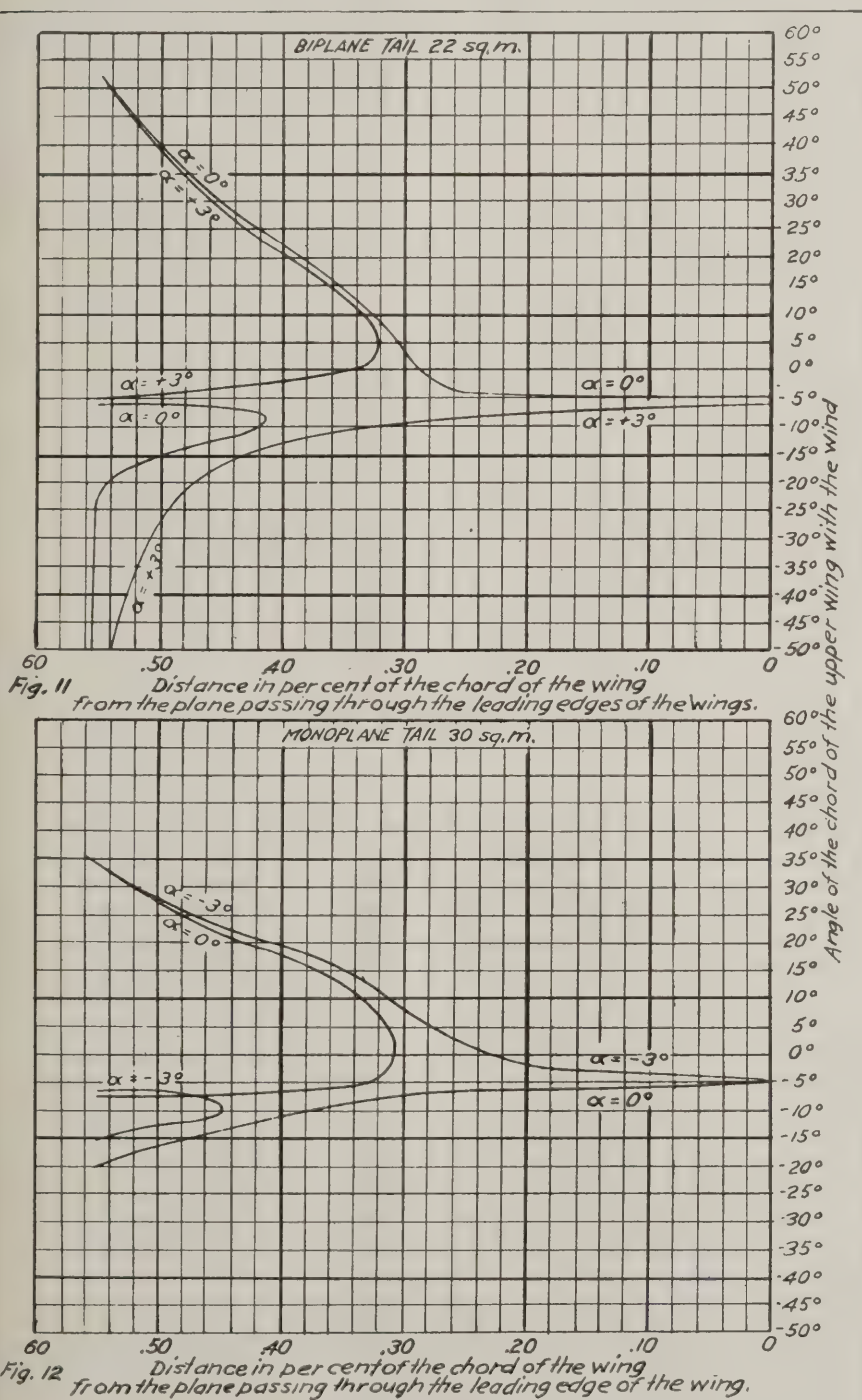 BIPLANE TAIL 22 sq.m.
60°
55°
50°
45°
40°
35°
30°
25°
20°
15°
10°
5°
0°
-5°
-10°
-15°
-20°
-25°
-30°
-35°
-40°
-45°
-50°
α = 0°
α = +3°
α = +3°
α = 0°
α = 0°
α = +3°
α = +3°
60 .50 .40 .30 .20 .10 0
Fig. 11
Distance in per cent of the chord of the wing
from the plane passing through the leading edges of the wings.
Angle of the chord of the upper wing with the wind
MONOPLANE TAIL 30 sq.m.
60°
55°
50°
45°
40°
35°
30°
25°
20°
15°
10°
5°
0°
-5°
-10°
-15°
-20°
-25°
-30°
-35°
-40°
-45°
-50°
α = -3°
α = 0°
α = -3°
α = -3°
α = 0°
60 .50 .40 .30 .20 .10 0
Fig. 12
Distance in per cent of the chord of the wing
from the plane passing through the leading edge of the wing.